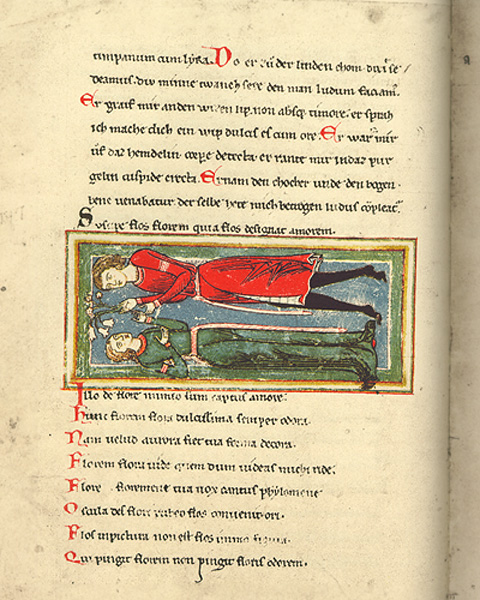 timpanum cum lyra. Do er zů der linden chom. dixit se
deamus. div minne twanch sere den man ludum faciam9.
Er graif mir an den wizen lip. non absq; timore. er sprah
ich mache dich ein wip dulcis es cum ore. Er warf mir
ůf daz hemdelin. corpe detecta. er rante mir in daz pur
gelin cuspide erecta. Er nam den chocher unde den bogen.
bene uenabatur. der selbe hete mich betrogen ludus cōpleat'.
Suscipe flos florem quia flos designat amorem.
Illo de flore nimio sum captus amore.
Hunc florem flora dulcissima semper odora.
Nam uelud aurora fiet tua forma decora.
Florem flora uide quem dum uideas michi ride.
Flore tua uox cantus phylomene
Oscula des flori rubeo flos conuenit ori.
Flos in pictura non est flos immo figura.
Qui pingit florem non pingit floris odorem.